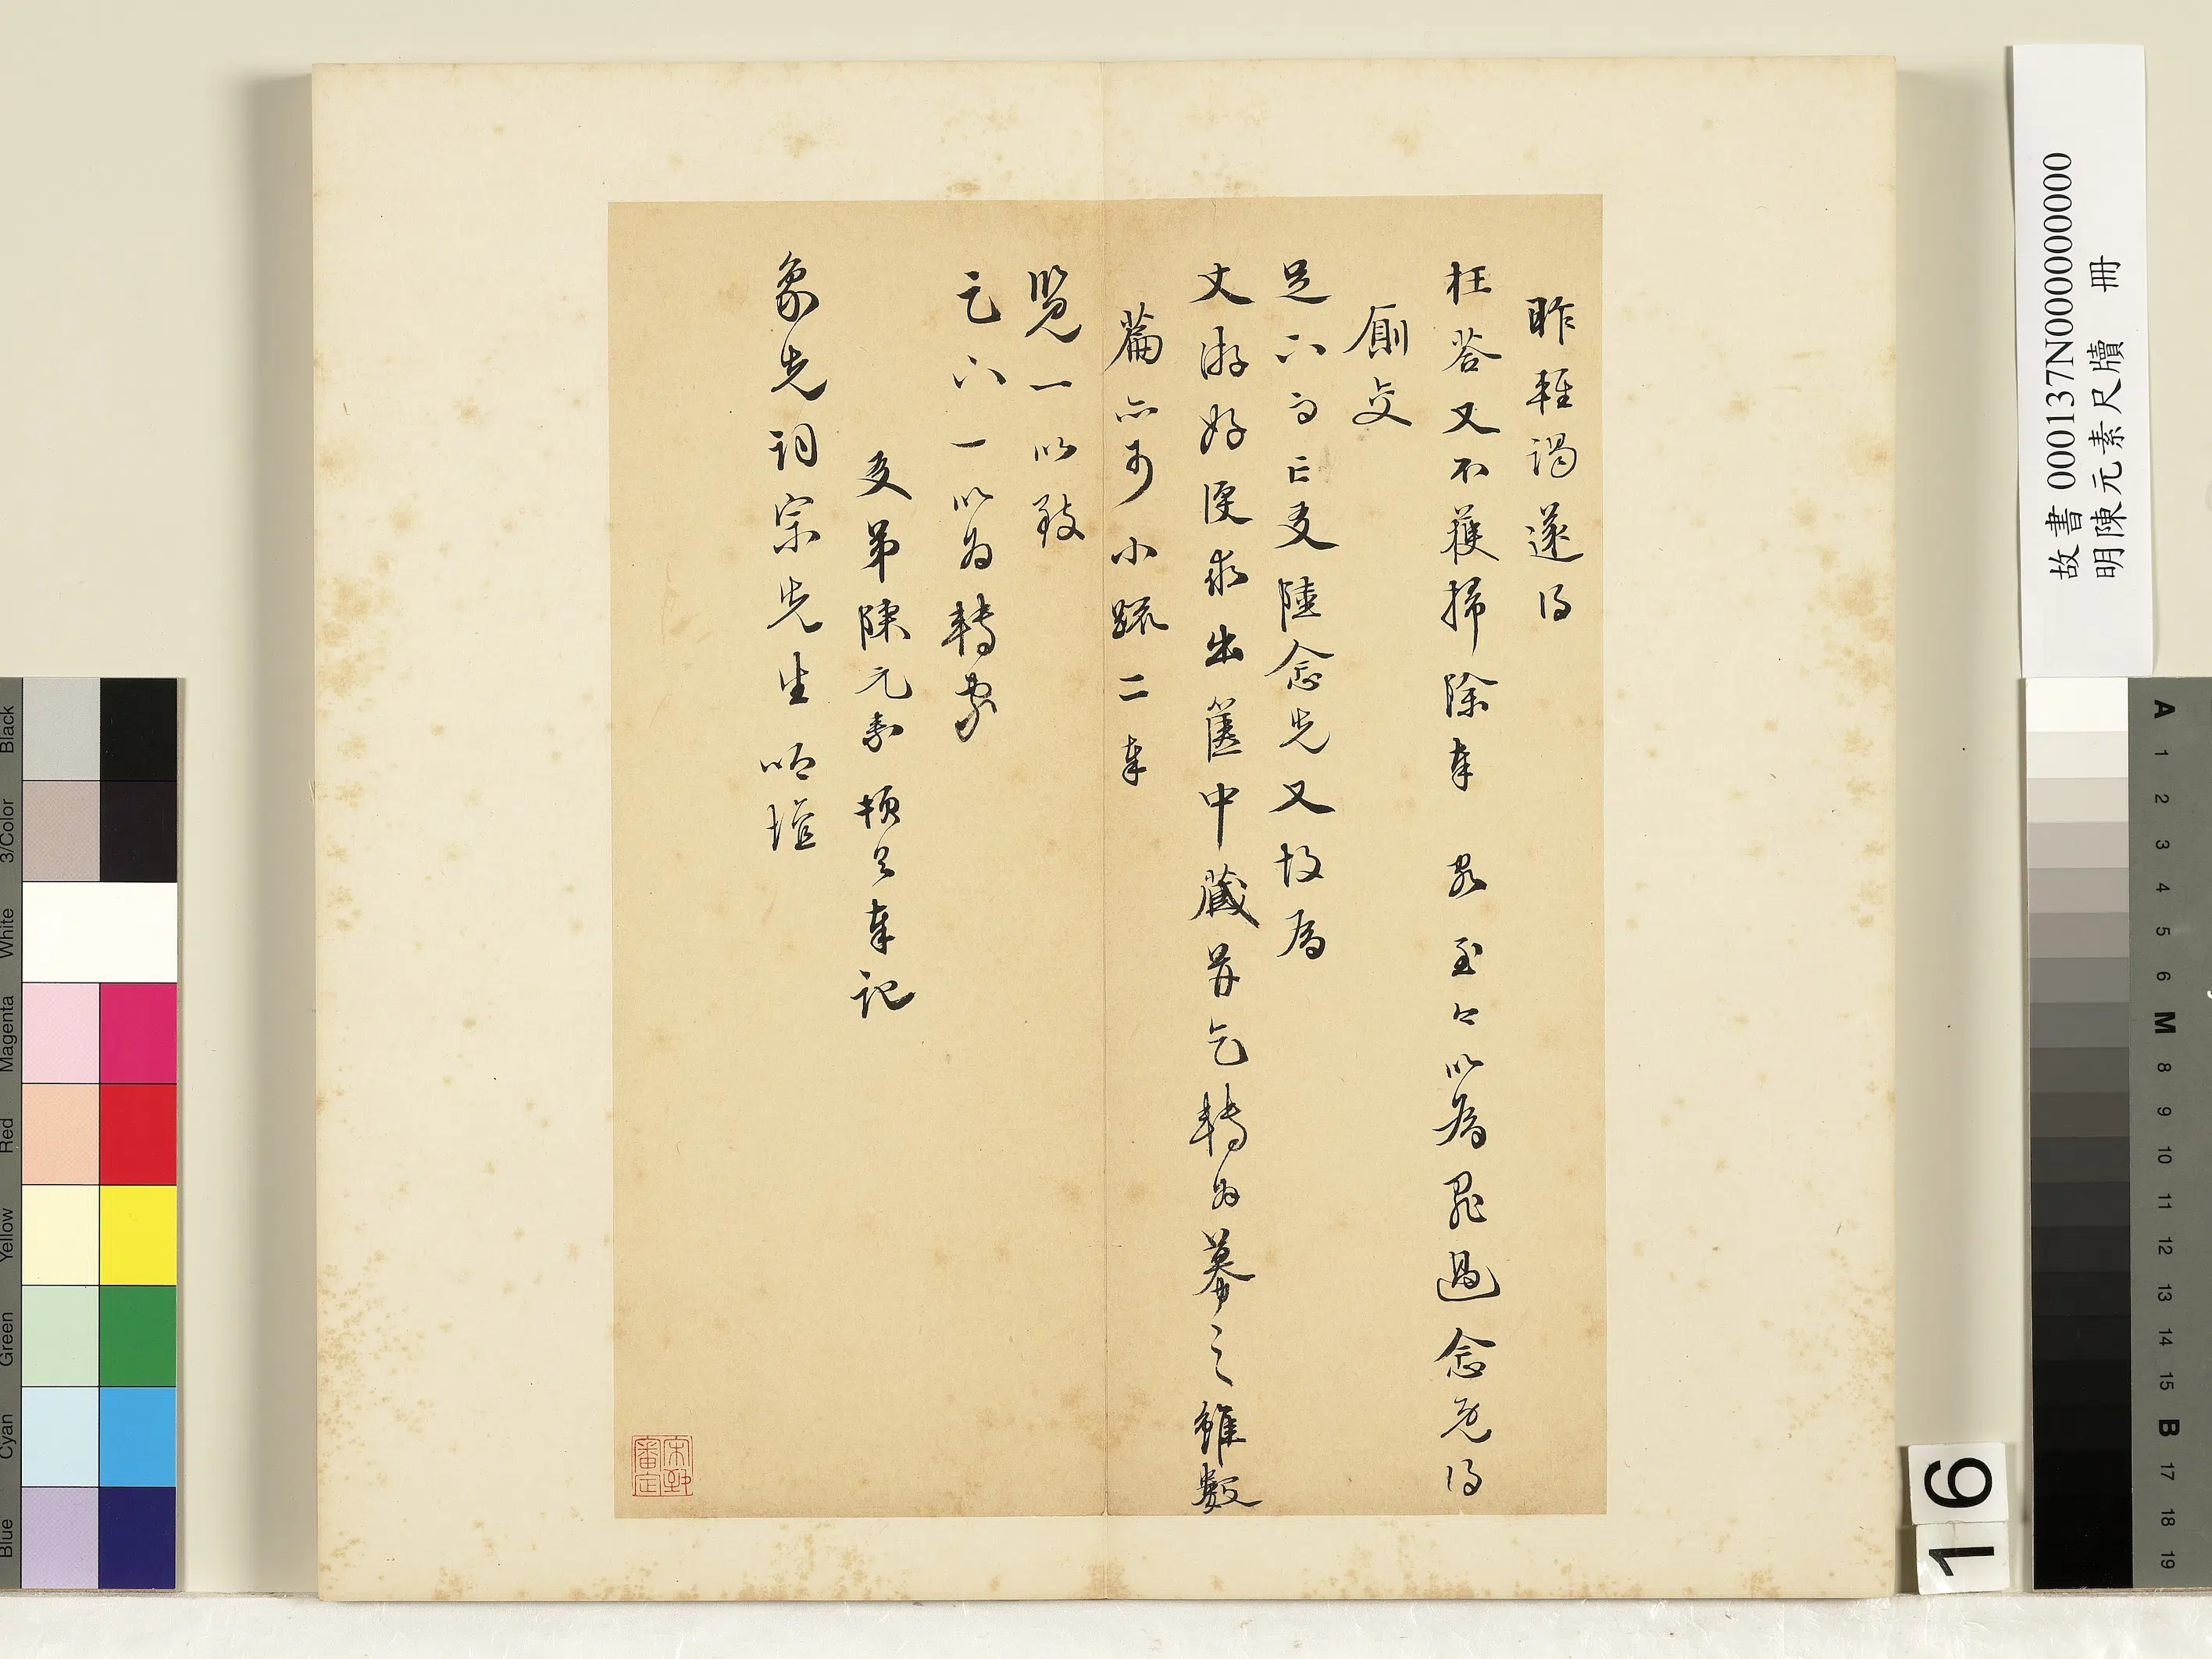 昨輕謁遂得
枉答又不獲掃除奉 君至今以為罪過念既得
廁交
足下而亡友陸念先又故為
丈游好便求出篋中藏弆乞轉為摹之雖數
篇亦可小疏二奉
覽一以致
乞下一以為轉求
友弟陳元素頓首奉記
象先詞宗先生
審定
故書 000137N000000000
明陳元素尺牘 冊
16
Blue Cyan Green Yellow Red Magenta White 3/Color Black
A 1 2 3 4 5 6 M 8 9 10 11 12 13 14 15 B 17 18 19